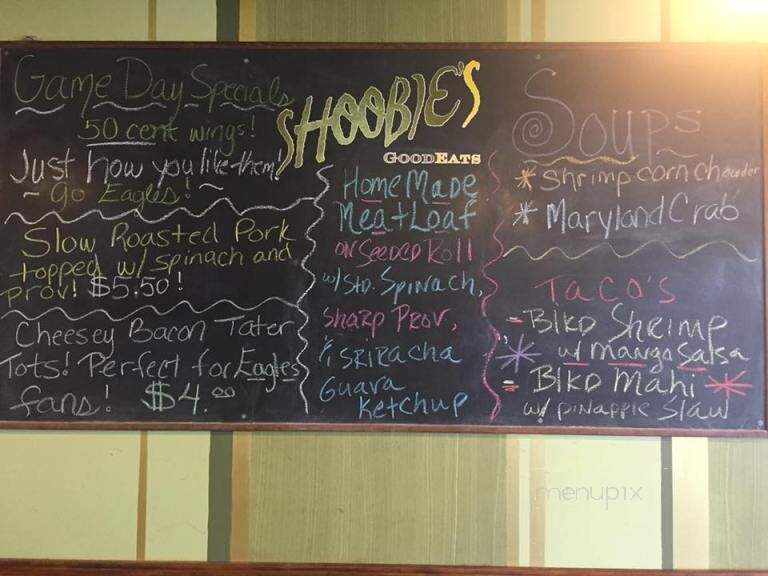 Game Day Specials
50 cent wings!
Just how you like them!
~ Go Eagles! ~
Slow Roasted Pork
topped w/ spinach and
prov! $5.50!
Cheesey Bacon Tater
Tots! Perfect for Eagles
fans! $4.00
SHOOBIE'S
GOODEATS
HomeMade
MeatLoaf
on Seeded Roll
w/ Std. Spinach,
Sharp Prov,
& SRIRacha
Guava
Ketchup
Soups
* Shrimp corn chowder
* Maryland Crab
TaCO'S
- Blkd Shrimp
w/ mango Salsa
- Blkd Mahi
w/ pinapple Slaw
menupix